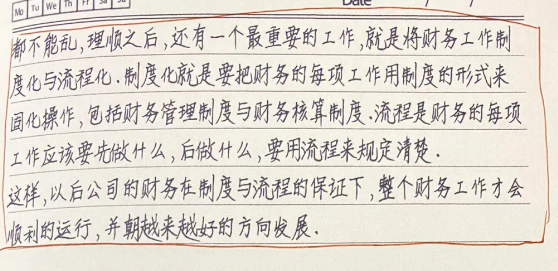 Mo Tu We Th Fr Sa Su
Date / /
都不能乱,理顺之后,还有一个最重要的工作,就是将财务工作制
度化与流程化、制度化就是要把财务的每项工作用制度的形式来
固化操作,包括财务管理制度与财务核算制度、流程是财务的每项
工作应该要先做什么,后做什么,要用流程来规定清楚.
这样,以后公司的财务在制度与流程的保证下,整个财务工作才会
顺利的运行,并朝越来越好的方向发展.